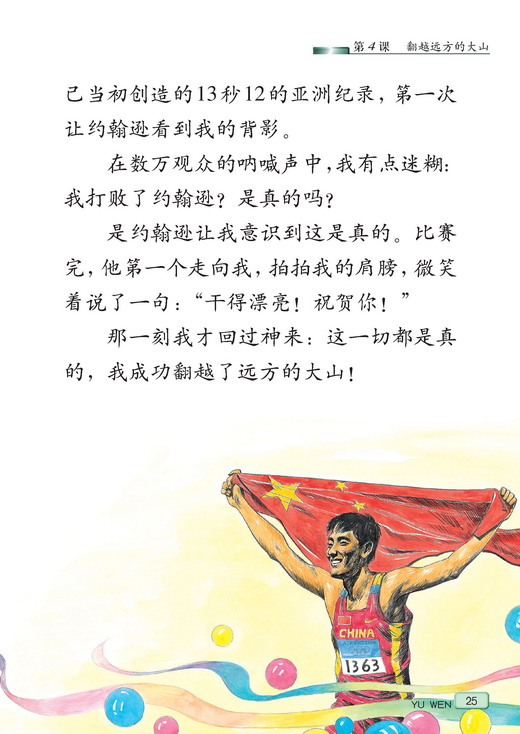 第4课 翻越远方的大山
己当初创造的13秒12的亚洲纪录，第一次
让约翰逊看到我的背影。
在数万观众的呐喊声中，我有点迷糊：
我打败了约翰逊？是真的吗？
是约翰逊让我意识到这是真的。比赛
完，他第一个走向我，拍拍我的肩膀，微笑
着说了一句：“干得漂亮！祝贺你！”
那一刻我才回过神来：这一切都是真
的，我成功翻越了远方的大山！
CHINA
1363
YU WEN 25